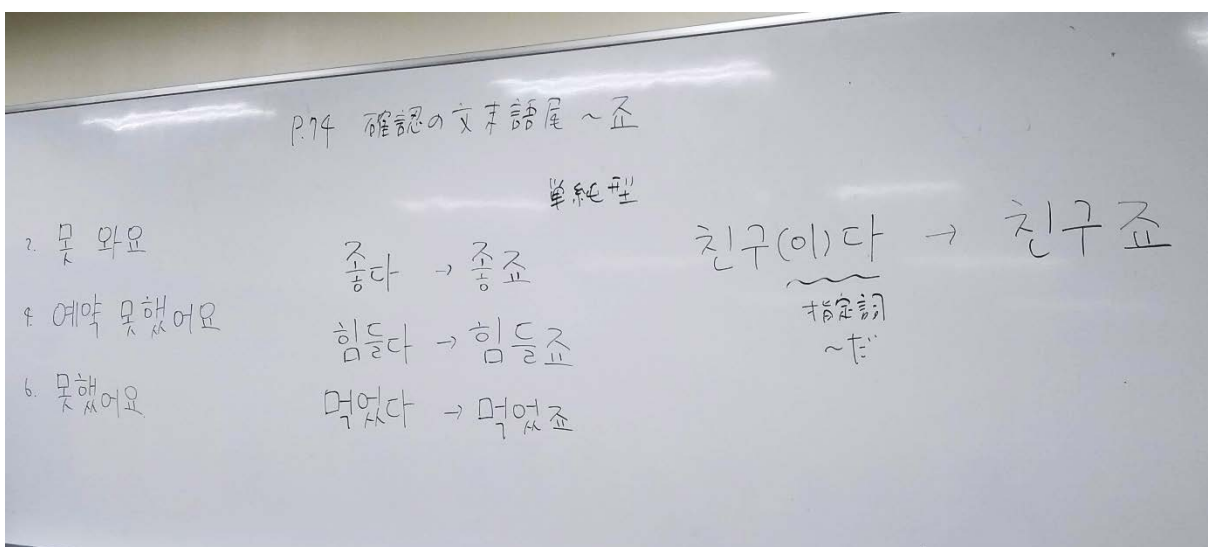 P.74 確認の文末語尾 ~죠
単純型
2. 못 와요
4. 예약 못했어요
6. 못했어요
좋다 → 좋죠
힘들다 → 힘들죠
먹었다 → 먹었죠
친구(이)다 → 친구죠
指定詞
~だ